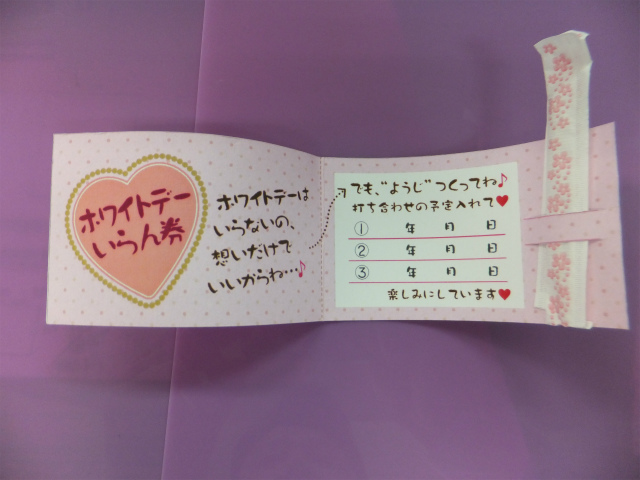 ホワイトデー
いらん券
ホワイトデーは
いらないの、
想いだけで
いいからね…♪
でも、"ようじ"つくってね♪
打ち合わせの予定入れて♥
① 年 月 日
② 年 月 日
③ 年 月 日
楽しみにしています♥